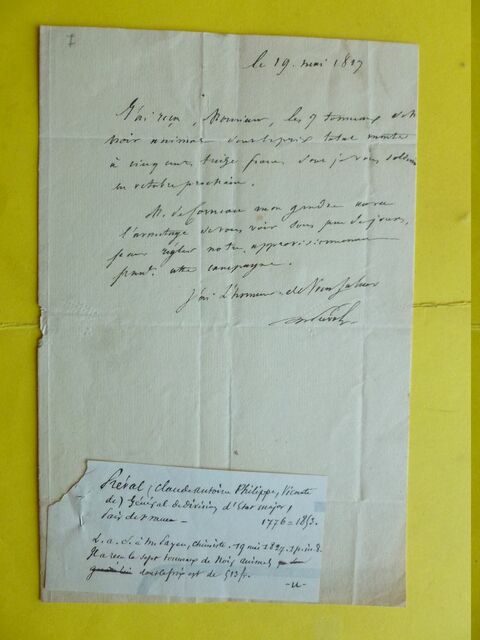 le 19. mai 1817
J'ai reçu, Monsieur, les 7 tonneaux de
noir animal dont le prix total monte
à cinq cent treize francs dont je vous
en octobre prochain.
M. de mon gendre aura
l'avantage de vous voir sous peu de jours,
pour régler notre approvisionnement
pendt. cette campagne.
J'ai l'honneur de Vous Saluer
Préval (Claude Antoine Philippe, Vicomte
de) Général de division d'Etat major,
Pair de France — 1776 = 1853.
L. a. s. à M. Payen, chimiste. 19 mai 18 . 1 p. in-8.
Il a reçu le sept tonneaux de Noir animal
dont le prix est de 513 fr.